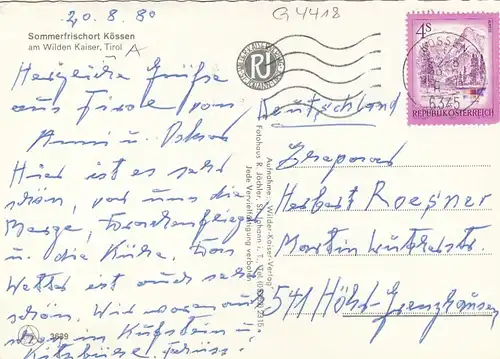 20.8.80
G 4418
Sommerfrischort Kössen
am Wilden Kaiser, Tirol
Herzliche Grüße
aus Tirole von
Anni u. Oskar
Hier ist es sehr
schön, vor uns die
Berge, Drachenflieger
u. die Kühe. Das
Wetter ist auch sehr
schön. Wir waren auch
schon in Kufstein u.
Kitzbühel. Tschüss!
3639
Aufnahme: "Wilder-Kaiser-Verlag"
Fotohaus R. Jöchler, St. Johann i. T., Tel.
Jede Vervielfältigung verboten
RJ
4 S
REPUBLIK ÖSTERREICH
KÖSSEN
6345
Deutschland
Ehepaar
Herbert Roesner
Martin Lutherstr.
541 Höhr Grenzhausen